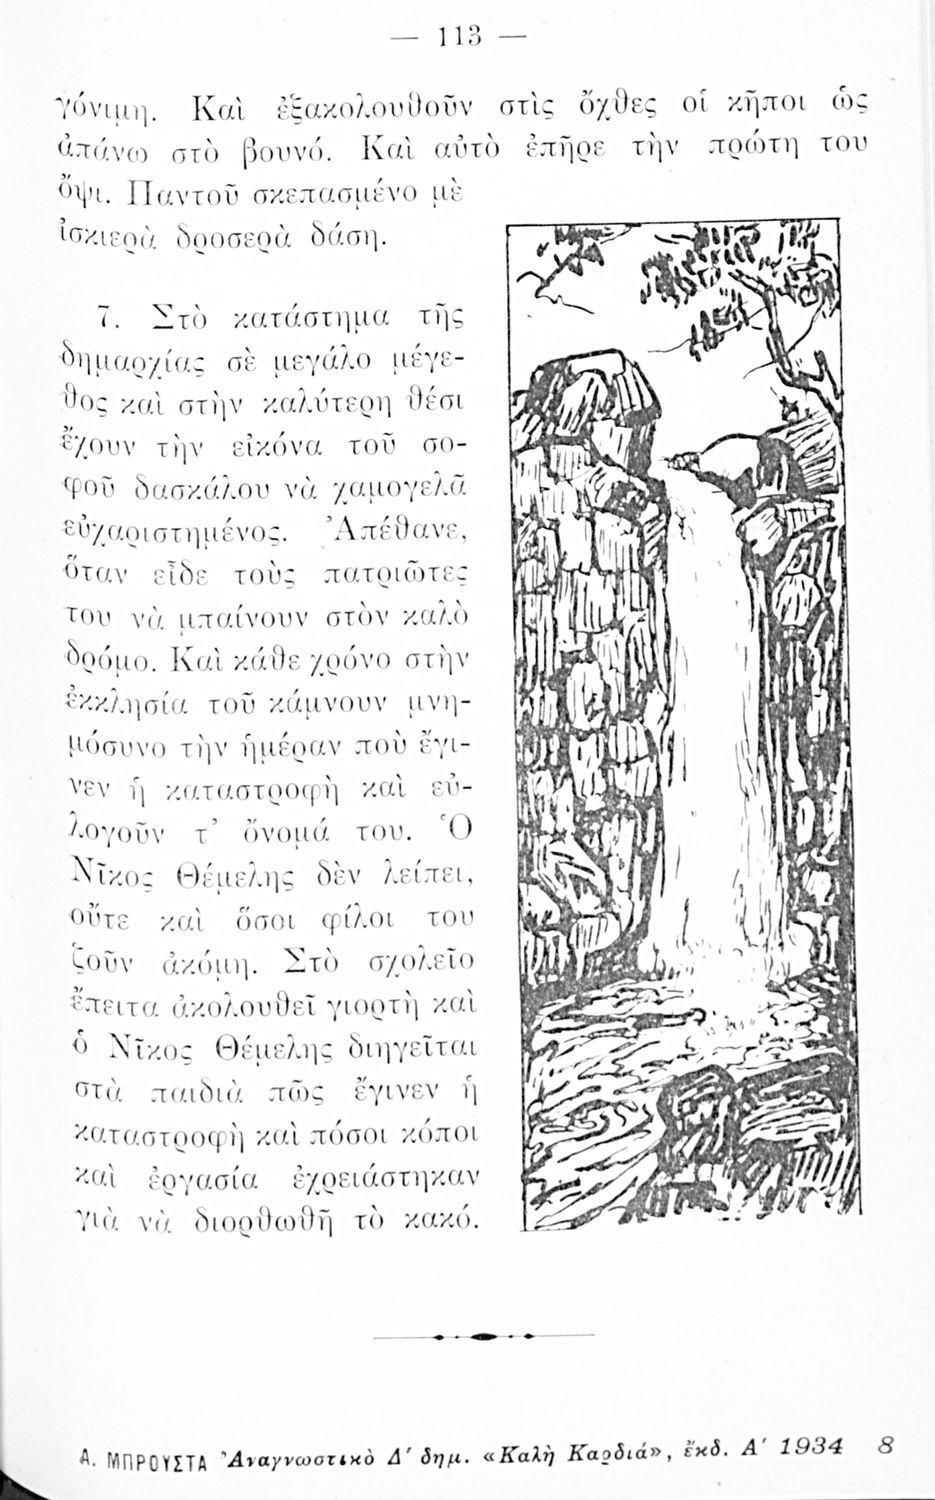 — 113 —
γόνιμη. Καὶ ἐξακολουθοῦν στὶς ὄχθες οἱ κῆποι ὡς
ἀπάνω στὸ βουνό. Καὶ αὐτὸ ἐπῆρε τὴν πρώτη του
ὄψι. Παντοῦ σκεπασμένο μὲ
ἰσκιερὰ δροσερὰ δάση.
7. Στὸ κατάστημα τῆς
δημαρχίας σὲ μεγάλο μέγε-
θος καὶ στὴν καλύτερη θέσι
ἔχουν τὴν εἰκόνα τοῦ σο-
φοῦ δασκάλου νὰ χαμογελᾶ
εὐχαριστημένος. Ἀπέθανε,
ὅταν εἶδε τοὺς πατριῶτες
του νὰ μπαίνουν στὸν καλὸ
δρόμο. Καὶ κάθε χρόνο στὴν
ἐκκλησία τοῦ κάμνουν μνη-
μόσυνο τὴν ἡμέραν ποὺ ἔγι-
νεν ἡ καταστροφὴ καὶ εὐ-
λογοῦν τ’ ὄνομά του. Ὁ
Νῖκος Θέμελης δὲν λείπει,
οὔτε καὶ ὅσοι φίλοι του
ζοῦν ἀκόμη. Στὸ σχολεῖο
ἔπειτα ἀκολουθεῖ γιορτὴ καὶ
ὁ Νῖκος Θέμελης διηγεῖται
στὰ παιδιὰ πῶς ἔγινεν ἡ
καταστροφὴ καὶ πόσοι κόποι
καὶ ἐργασία ἐχρειάστηκαν
γιὰ νὰ διορθωθῆ τὸ κακό.
Α. ΜΠΡΟΥΣΤΑ Ἀναγνωστικὸ Δ′ δημ. «Καλὴ Καρδιά», ἔκδ. Α′ 1934 8